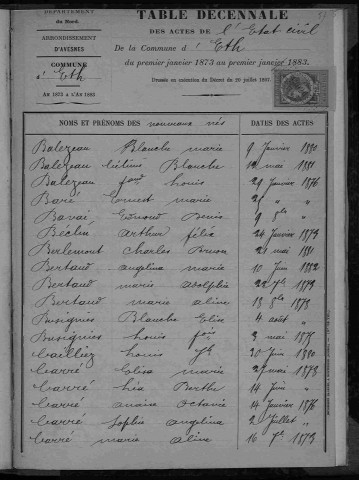 DÉPARTEMENT
du Nord.
ARRONDISSEMENT
D'AVESNES
COMMUNE
d' Eth
AN 1873 à L'AN 1883
TABLE DÉCENNALE
DES ACTES DE l'Etat civil
De la Commune d' Eth
du premier janvier 1873 au premier janvier 1883.
Dressée en exécution du Décret du 20 juillet 1807.
NOMS ET PRÉNOMS DES nouveaux nés DATES DES ACTES
Balezeau Blanche Marie 9 Janvier 1880
Balezeau Blanche 12 mai 1881
Balezeau Louis 29 Janvier 1876
Baré Ernest Marie 26 " "
Bavai Edmond Denis 9 8bre "
Béchin Arthur félix 24 Janvier 1879
Berlemont Charles 21 mai 1881
Bertaud angelina marie 10 Juin 1882
Bertaud marie adolphie 22 7bre 1873
Bertaud marie aline 13 8bre 1878
Busignies Blanche Elise 4 août "
Busignies Louis 3 mai 1875
Cailliez Louis Jh 30 Juin 1880
Carré Elisa marie 27 mai 1873
Carré Berthe 14 Juin "
Carré Octavie 14 Janvier 1876
Carré Sophie angelina 2 Juillet "
Carré marie aline 16 7bre 1879